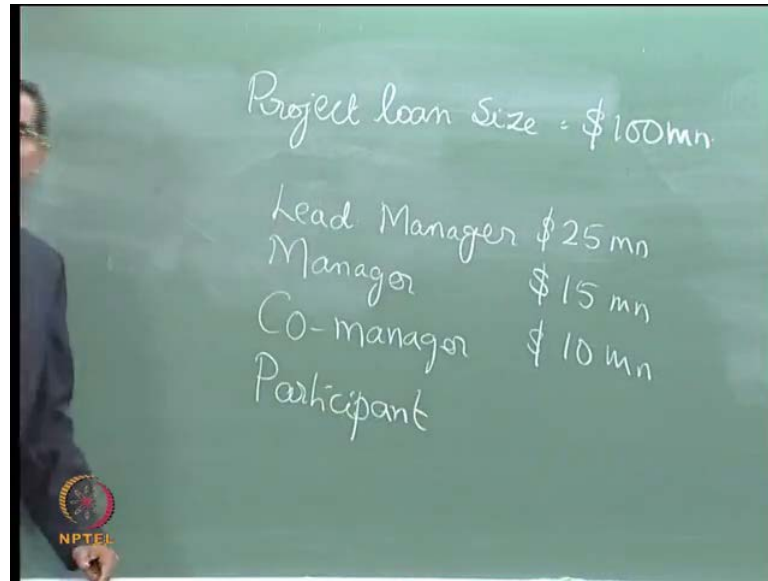 Project loan Size = $100mn
Lead Manager $25mn
Manager $15mn
Co-manager $10mn
Participant
NPTEL